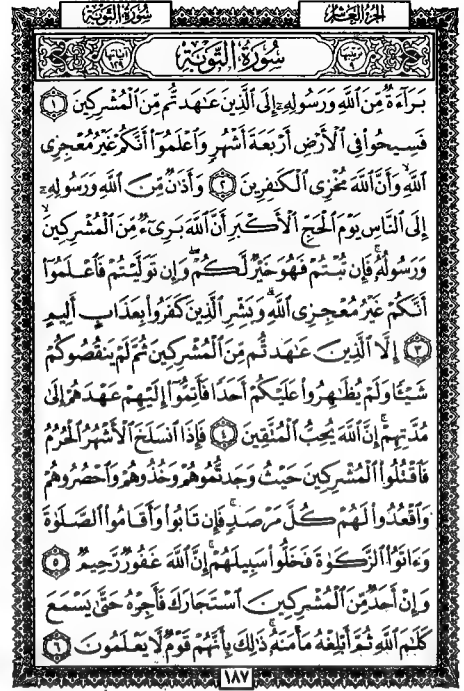 الجزء العاشر سورة التوبة
ترتيبها ٩ سورة التوبة آياتها ١٢٩
بَرَآءَةٌ مِّنَ ٱللَّهِ وَرَسُولِهِۦٓ إِلَى ٱلَّذِينَ عَٰهَدتُّم مِّنَ ٱلْمُشْرِكِينَ ١
فَسِيحُوا۟ فِى ٱلْأَرْضِ أَرْبَعَةَ أَشْهُرٍ وَٱعْلَمُوٓا۟ أَنَّكُمْ غَيْرُ مُعْجِزِى
ٱللَّهِ ۙ وَأَنَّ ٱللَّهَ مُخْزِى ٱلْكَٰفِرِينَ ٢ وَأَذَٰنٌ مِّنَ ٱللَّهِ وَرَسُولِهِۦٓ
إِلَى ٱلنَّاسِ يَوْمَ ٱلْحَجِّ ٱلْأَكْبَرِ أَنَّ ٱللَّهَ بَرِىٓءٌ مِّنَ ٱلْمُشْرِكِينَ ۙ
وَرَسُولُهُۥ ۚ فَإِن تُبْتُمْ فَهُوَ خَيْرٌ لَّكُمْ ۖ وَإِن تَوَلَّيْتُمْ فَٱعْلَمُوٓا۟
أَنَّكُمْ غَيْرُ مُعْجِزِى ٱللَّهِ ۗ وَبَشِّرِ ٱلَّذِينَ كَفَرُوا۟ بِعَذَابٍ أَلِيمٍ
٣ إِلَّا ٱلَّذِينَ عَٰهَدتُّم مِّنَ ٱلْمُشْرِكِينَ ثُمَّ لَمْ يَنقُصُوكُمْ
شَيْـًٔا وَلَمْ يُظَٰهِرُوا۟ عَلَيْكُمْ أَحَدًا فَأَتِمُّوٓا۟ إِلَيْهِمْ عَهْدَهُمْ إِلَىٰ
مُدَّتِهِمْ ۚ إِنَّ ٱللَّهَ يُحِبُّ ٱلْمُتَّقِينَ ٤ فَإِذَا ٱنسَلَخَ ٱلْأَشْهُرُ ٱلْحُرُمُ
فَٱقْتُلُوا۟ ٱلْمُشْرِكِينَ حَيْثُ وَجَدتُّمُوهُمْ وَخُذُوهُمْ وَٱحْصُرُوهُمْ
وَٱقْعُدُوا۟ لَهُمْ كُلَّ مَرْصَدٍ ۚ فَإِن تَابُوا۟ وَأَقَامُوا۟ ٱلصَّلَوٰةَ
وَءَاتَوُا۟ ٱلزَّكَوٰةَ فَخَلُّوا۟ سَبِيلَهُمْ ۚ إِنَّ ٱللَّهَ غَفُورٌ رَّحِيمٌ ٥
وَإِنْ أَحَدٌ مِّنَ ٱلْمُشْرِكِينَ ٱسْتَجَارَكَ فَأَجِرْهُ حَتَّىٰ يَسْمَعَ
كَلَٰمَ ٱللَّهِ ثُمَّ أَبْلِغْهُ مَأْمَنَهُۥ ۚ ذَٰلِكَ بِأَنَّهُمْ قَوْمٌ لَّا يَعْلَمُونَ ٦
١٨٧